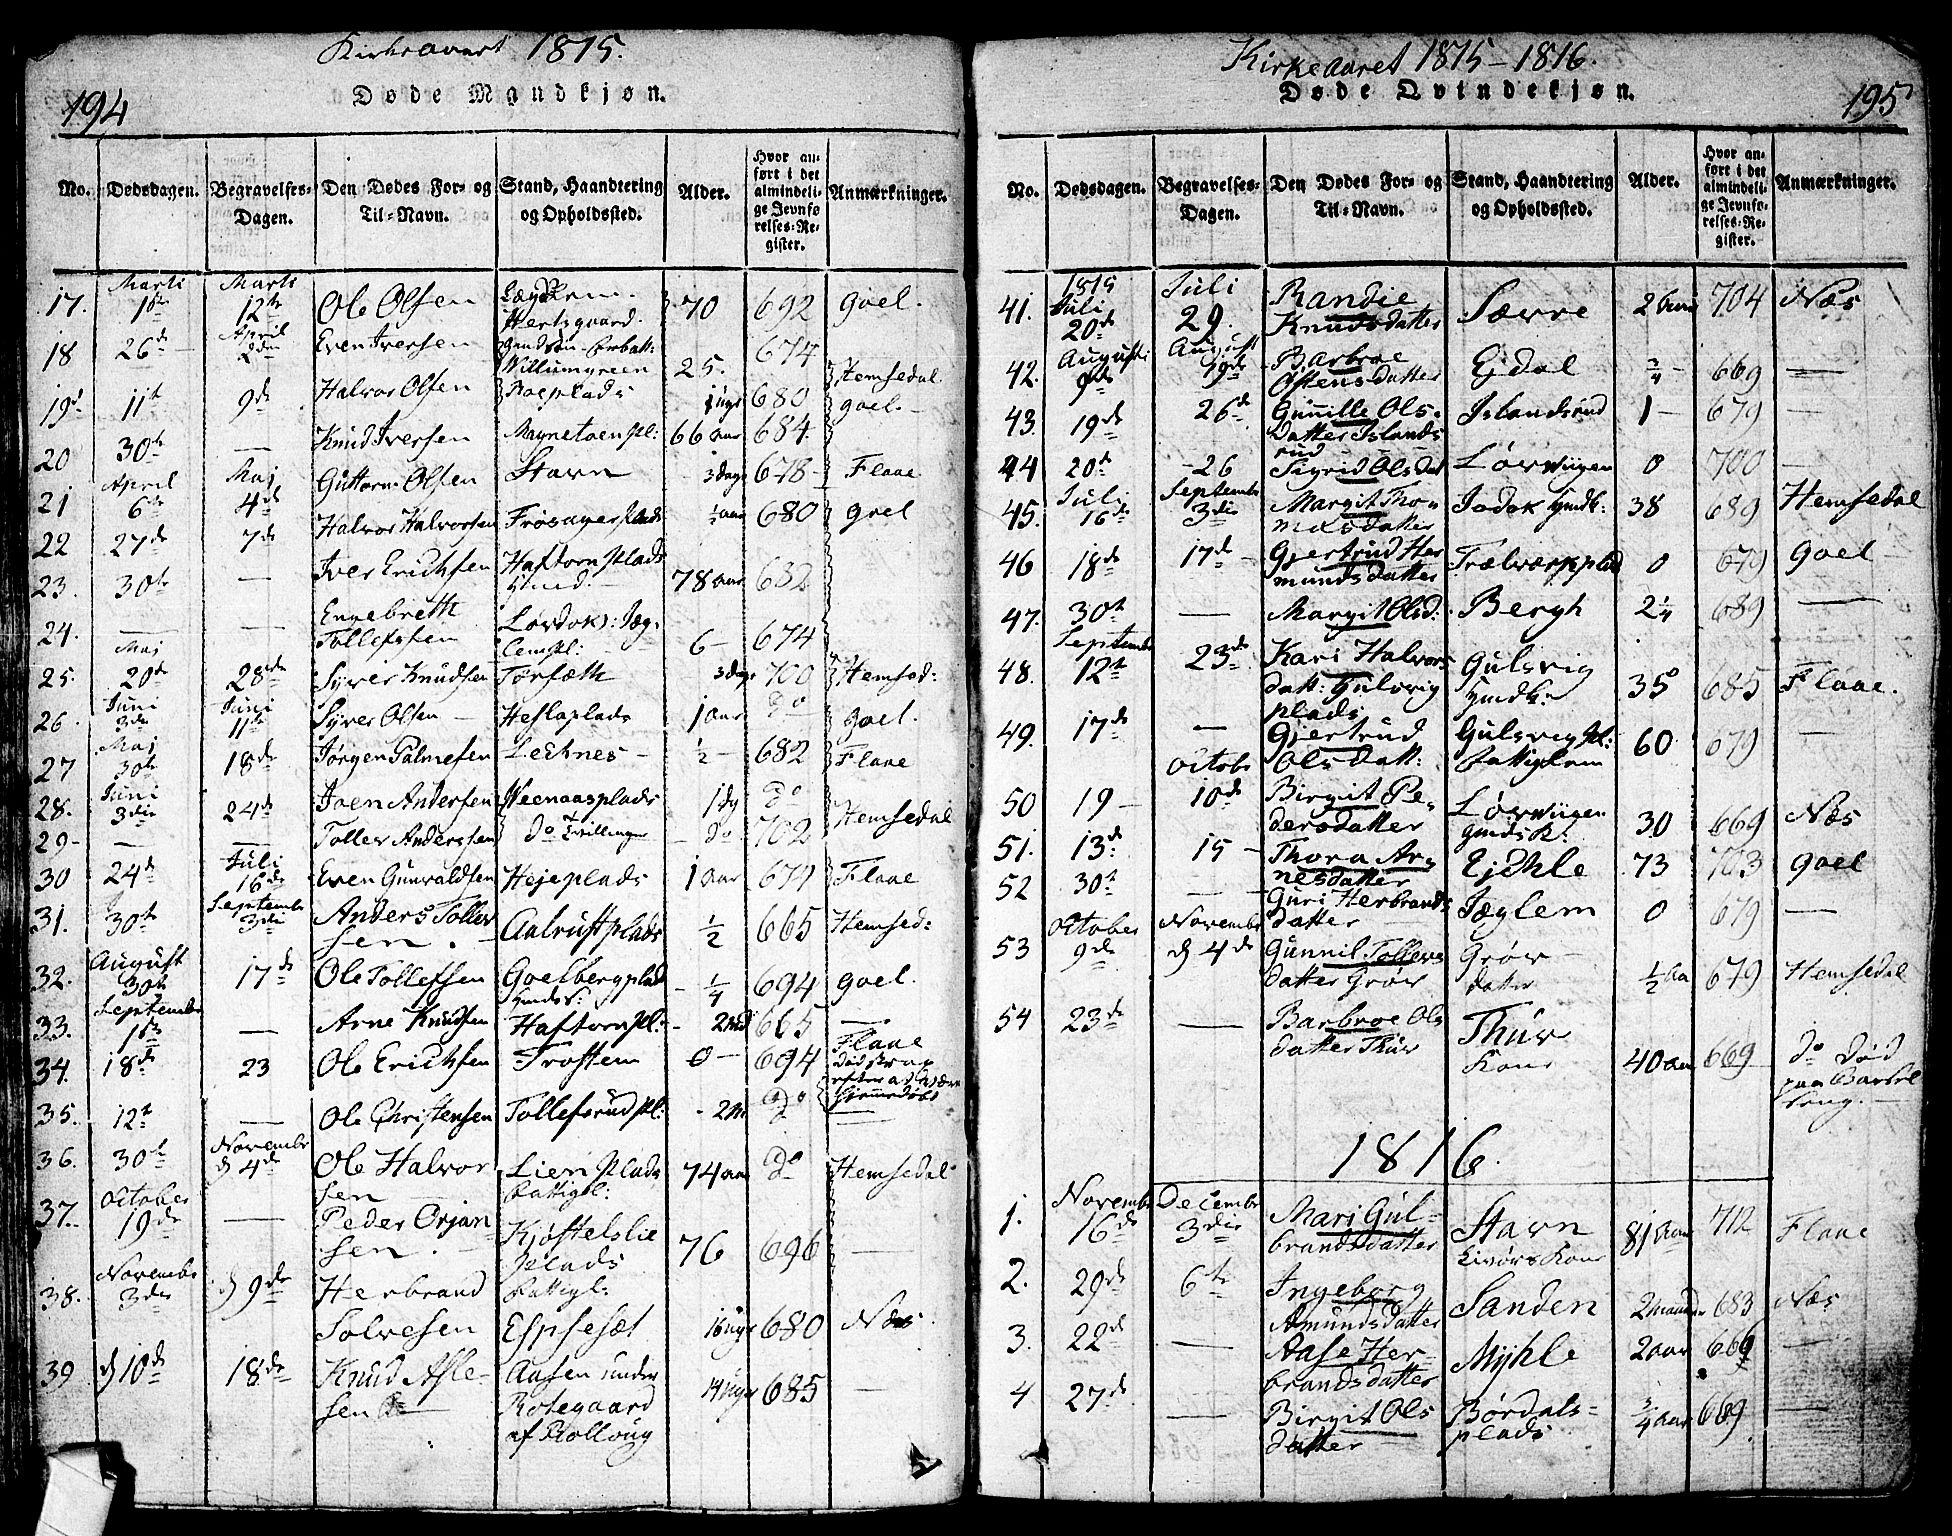 Kirkeaaret 1815.
194
Døde Mandkjøn.
No. Dødsdagen. Begravelses-Dagen. Den Dødes For- og Til-Navn. Stand, Haandtering og Opholdssted. Alder. Hvor anført i det almindelige Jevnførelses-Register. Anmærkninger.
17. Marti 1ste Marti 12te Ole Olsen Hertsgaard. 70 692 Goel.
18 26de April 2den Even Iversen Willumgreen 25. 674 Hemsedal
19de 11te 9de Halvor Olsen Roeplads 1 uge 680 Goel.
20 30te — Knud Iversen Magnetoen pl: 66 aar 684.
21 April 6te Maj 4de Guttorm Olsen Stavn 3 dage 678 Flaae
22 27de 7de Halvor Halvorsen Frøsager plads ½ aar 680 Goel
23. 30te — Iver Erichsen Haftorn plads 78 aar 632
24. — — Engebreth Tollefssen 6 — 674
25. Maj 20de 28de Syver Knudsen Torsæth 3 dage 700 Hemsed:
26. Juni 3die Juni 11te Syver Olsen Heslaplads 1 aar do Goel.
27 Maj 30te 18de Jørgen Palmesen Lechnes ½ 682 Flaae
28. Juni 3die 24de Joen Andersen Weenaasplads 1 dg do Hemsedal
29 — — Tollev Anderssen do Tvillinger do 702
30 24de Juli 16de Even Gunvaldsen Hejeplads 1 aar 674 Flaae
31. 30te September 3die Anders Tollevsen. Aalrustplads ½ 665 Hemsed:
32. August 30te 17de Ole Tollefsen Goelbergplad ¼ 694 Goel.
33. September 1ste — Arne Knudsen Haftorn pl: 2 665 —
34. 18de 23 Ole Erichsen Trostem 0 — 694 Flaae
35. 12te — Ole Christensen Tollefsrud pl: 2 M do —
36. 30te November d 4de Ole Halvorsen Lien plads 74 aar do Hemsedal
37. October 19de — Peder Orjansen. Kjøstelslie plads 76 696 —
38. November 3die d 9de Herbrand Solvesen Espeset 16 uger 680 Næs
39 d 10de 18de Knud Aslesen Aasen under Rotegaard af Rolloug 14 uger 685 —
Kirkeaaret 1815–1816.
195
Døde Qvindekjøn.
No. Dødsdagen. Begravelses-Dagen. Den Dødes For- og Til-Navn. Stand, Haandtering og Opholdssted. Alder. Hvor anført i det almindelige Jevnførelses-Register. Anmærkninger.
41. 1815 Juli 20de Juli 29. Randie Knudsdatter Særre 704 Næs
42. Augusti 9de August 19de Barbroe Østensdatter Ejdal ¾ 669 —
43. 19de 26de Gunnille Olsdatter Islandsrud Islandsrud 1 — 679 —
44 20de 26 Sigrid Olsdat Lørwiigen 0 700 —
45. Juli 16de September 3die Margit Thomasdatter Jodok 38 689 Hemsedal
46 18de 17de Gjertrud Hermundsdatter Trælværkplad 0 679 Goel
47. 30te — Margit Olsd: Bergh 2¼ 689 —
48. September 12te 23de Kari Halvorsdatt: Gulsvig plads Gulsvig 35 685 Flaae.
49. 17de — Gjertrud Olsdatt: Gulsvig pl: fattiglem 60 679 —
50 19 — October 10de Birgit Pedersdatter Lørwiigen 30 669 Næs
51. 13de 15 Thora Arnesdatter Ejdhle 73 703 Goel
52 30te — Guri Herbrandsdatter Jæglem 0 679 —
53 October 9de November d 4de Gunnil Tollevsdatter Grøv Grøv datter ½ aa 679 Hemsedal
54 23de — Barbroe Olsdatter Thuv Thuv Kone 40 aar 669 do Død paa Barselseng.
1816.
1. November 16de December 3die Mari Gulbrandsdatter Stavn 81 aar 712 Flaae
2. 29de 6te Ingeborg Amundsdatter Sanden 2 maaneder 683 Næs
3. 22de — Aase Herbrandsdatter Myhle 2 aar 669 —
4 27de — Birgit Olsdatter Børdalsplads ¾ aar 669. —